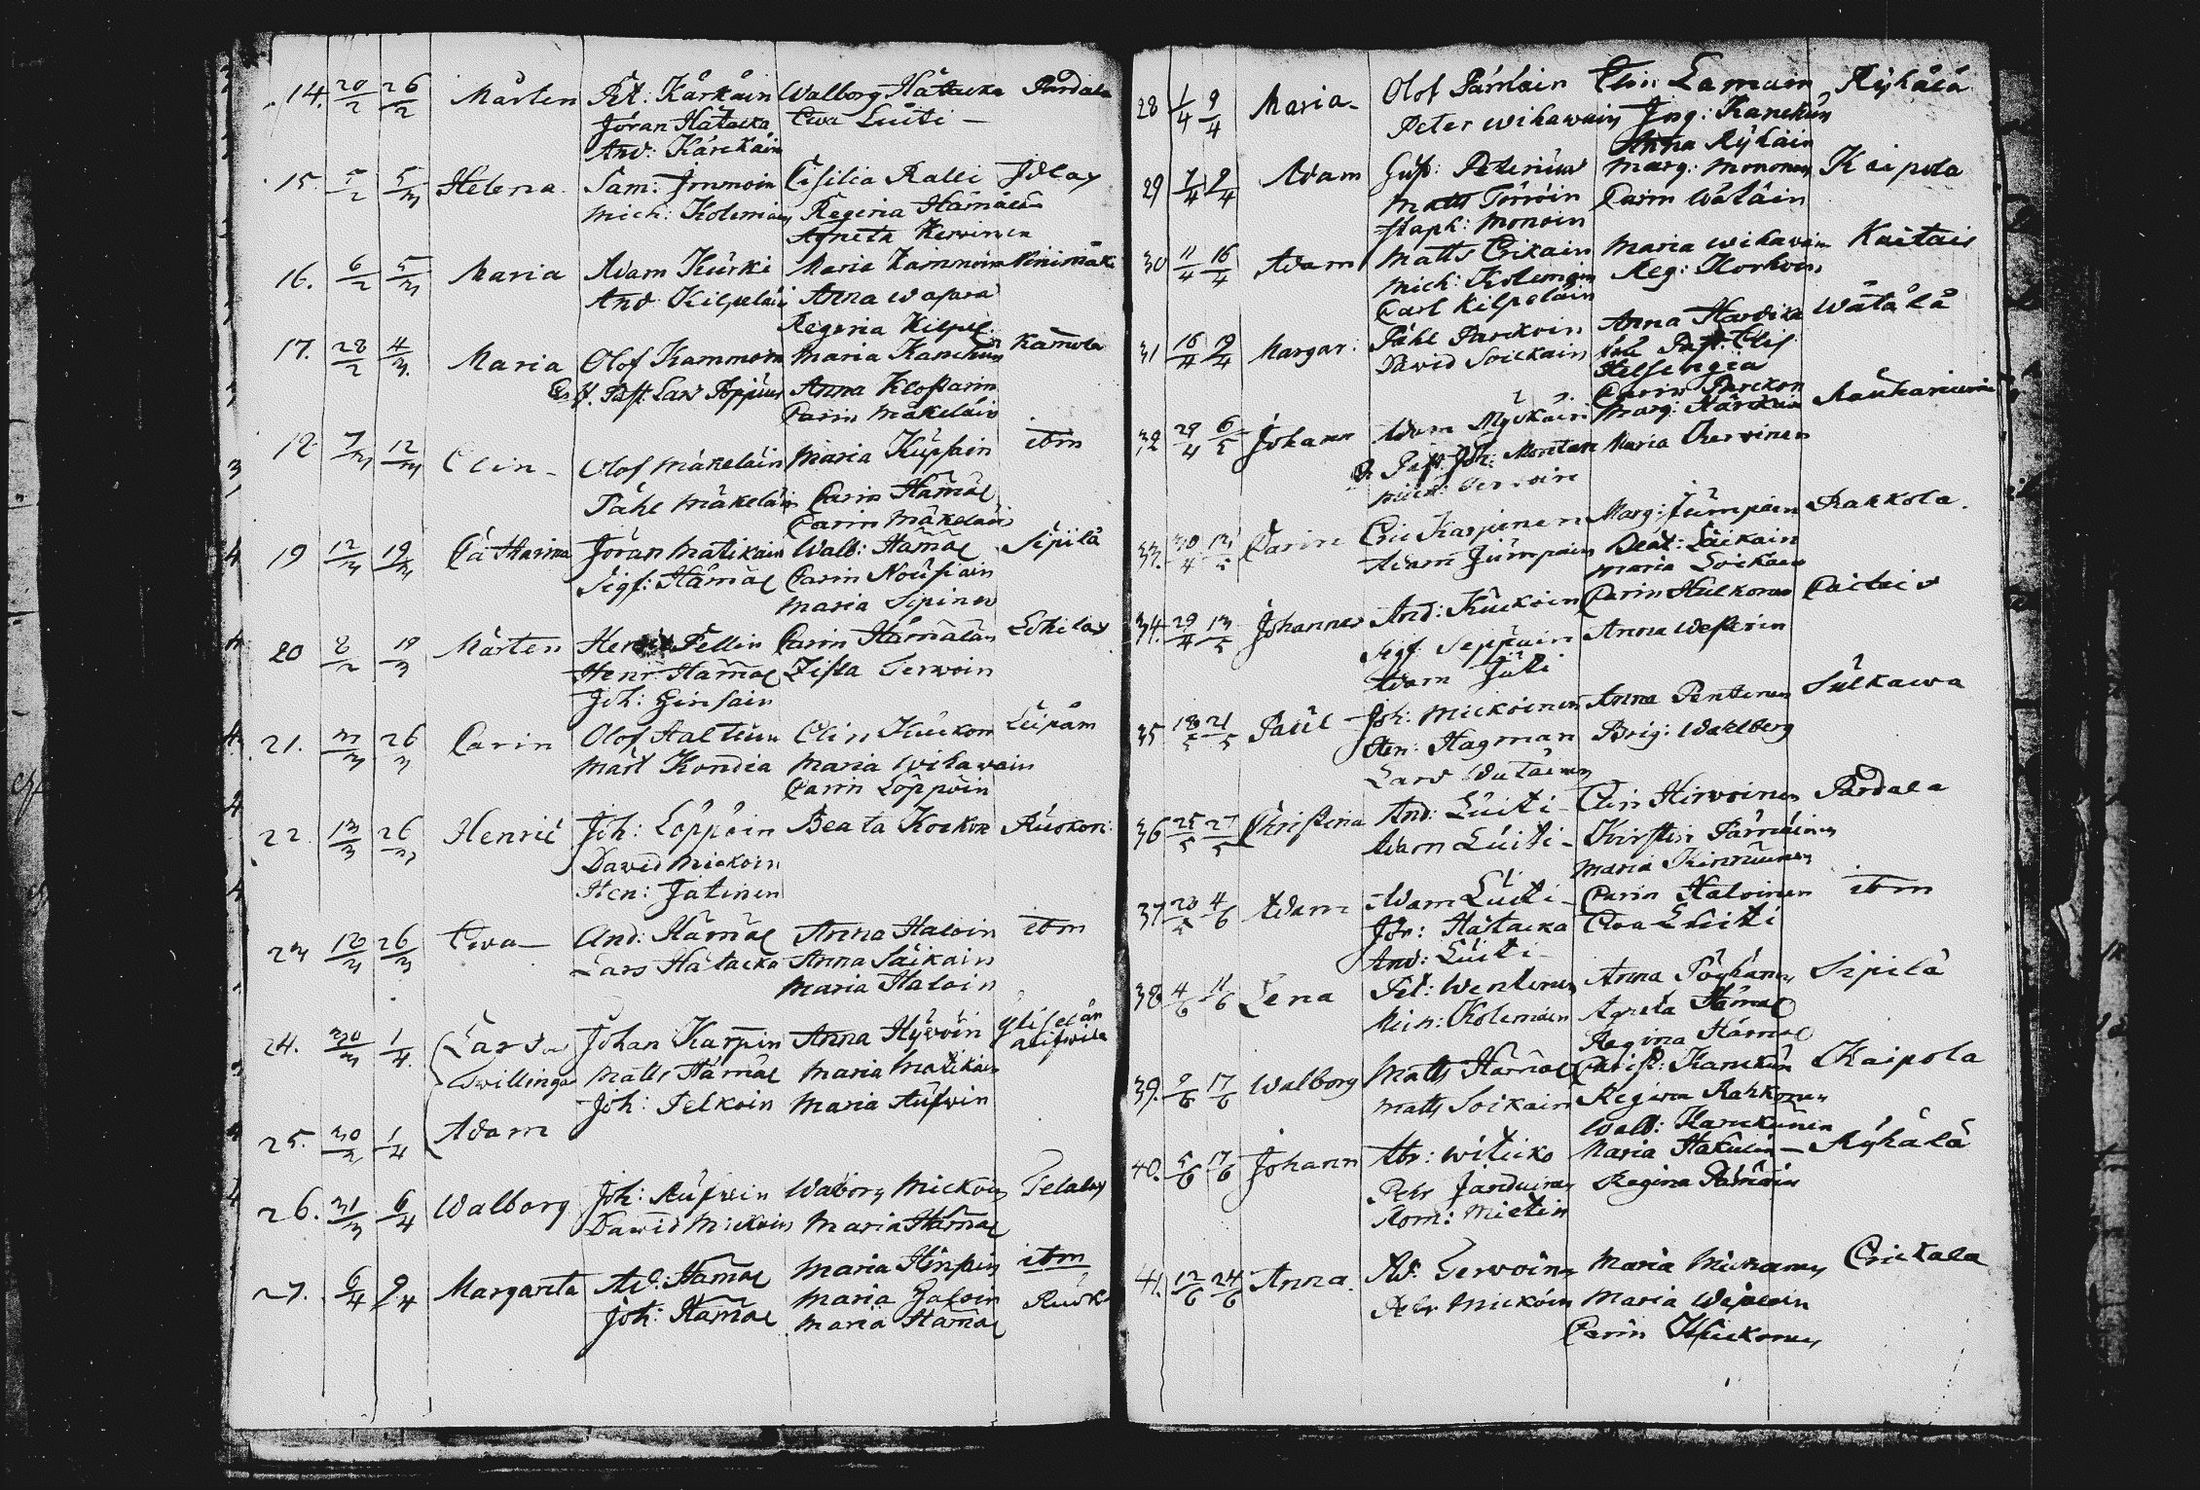 14. 20/2 26/2 Mårten Pet: Kärkäin Walborg Hätäcka Pardala
Jöran Hätäcka Ewa Luiti —
And: Kärckäin
15. 5/2 5/3 Helena. Sam: Immoin Cisilia Ralli Idlax
Mich: Kolemain Regeria Hämälä
Agneta Kervinen
16. 6/2 5/3 Maria Adam Kurki Maria Kammoin
And. Kilpeläi Anna Wapara
Regeria Kilpel.
17. 28/2 4/3 Maria Olof Kammoin Maria Kanckun Kamola
Past. Lars Poppius Anna Kloparin
Carin Mäkeläin
18 7/3 12/3 Elin - Olof Mäkeläin Maria Kuppain ibm
Påhl Mäkeläin Carin Hämäl
Carin Mäkeläin
19 12/3 19/3 Catharina Jöran Matikain Walb: Hämäl Sipilä
Sigf: Hämäl Carin Nousiain
Maria Sipinen
20 8/2 19/3 Mårten Henr: Pellin Carin Hämäläin Lohilax
Henr Hämäl Lisla Terwoin
Joh:
21. 26/3 Carin Olof Haltun Elin Kuckon
Mårt Kondia Maria Wihawain
Carin Löppöin
22. 13/3 26/3 Henric Joh: Löppöin Beata Kockon Ruokon:
David Mickoin
Hen: Jatinen
23 18/3 26/3 Ewa — And: Hämäl Anna Haloin ibm
Lars Hätäcka Anna Säikäin
Maria Haloin
24. 30/3 1/4 Lars Johan Karpin Anna Hywöin
twillingar Matts Hämäl Maria Matikain
Joh: Pelkoin Maria Aufwin
25. 30/3 1/4 Adam
26. 31/3 6/4 Walborg Joh: Aufwin Walborg Mickoin Telalax
David Mickoin Maria Hämäl
27. 6/4 9/4 Margareta Ad: Hämäl Maria ibm
Joh: Hämäl Maria Galoin
Maria Hämäl
28 1/4 9/4 Maria - Olof Pärnäin Elin Laman Ryhälä
Peter Wihawain Ing: Kanckun
Anna Ryhäin
29 7/4 9/4 Adam Gust: Petenius Marg: Mononen Kaipola
Matts Törröin Carin Wätäin
Staph: Monoin
30 11/4 16/4 Adam Matts Erikain Maria Wihawain Kaitais
Mich: Kolemain Reg: Korhoin
Carl Kilpeläin
31 16/4 19/4 Margar: Påhl Parckoin Anna Hardika Wätälä
David Soickain Past: Elis
Helsengia
Carin Parckon
32 29/4 6/5 Johann Adam Myckäin Marg: Härckäin
Past. Joh: Montan Maria Kervinen
33. 30/4 13/5 Carin Eric Karpinen Marg: Jumpain Rahkola.
Adam Jumpain Beat: Läikäin
Maria Loikain
34. 29/4 13/5 Johannes And: Kuckoin Carin Kulkonen Caitais
Sigf Seppäin Anna Westerin
Adam Juti
35 18/5 21/5 Paul Joh: Mickoinen Anna Penttinen Sulkawa
Hen: Hagman Brig: Wahlberg
Lars Wätäinen
36 25/5 27/5 Christina And: Luiti - Elin Hirvoinen Pardala
Adam Luiti - Kirstin Pärnäinen
Maria Kinnunen
37 28/5 4/6 Adam Adam Luiti - Carin Haloinen ibm
Jör: Hätäcka Ewa Luiti
And: Luiti -
38 4/6 11/6 Lena Pet: Wentinen Anna Pöyhänen Sipilä
Mich: Kolemain Agneta Hämäl
Regina Hämäl
39. 9/6 17/6 Walborg Matts Hämäl Christ: Kanckun Kaipola
Matts Soikain Regina Rahkonen
Walb: Kanckunen
40. 5/6 17/6 Johann Abr: Witicko Maria Hakulin — Ryhälä
Petr Janduinen Regina Pärnäin
Rom: Mietin
41. 12/6 24/6 Anna. Ad: Terwoinen Maria Mickainen Erickala
Petr Mickoin Maria
Carin Kuckonen